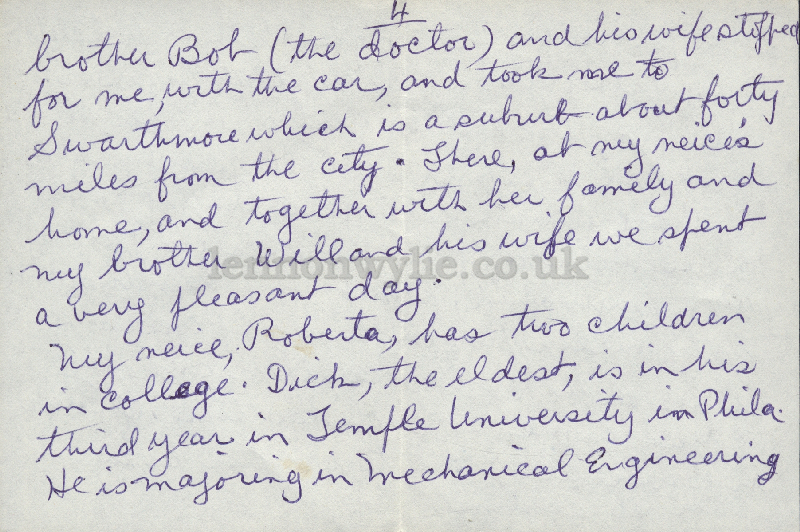 4
brother Bob (the doctor) and his wife stopped
for me, with the car, and took me to
Swarthmore which is a suburb about forty
miles from the city. There, at my neice's
home, and together with her family and
my brother Will and his wife we spent
lennonwylie.co.uk
a very pleasant day.
My neice, Roberta, has two children
in college. Dick, the eldest, is in his
third year in Temple University in Phila.
He is majoring in Mechanical Engineering